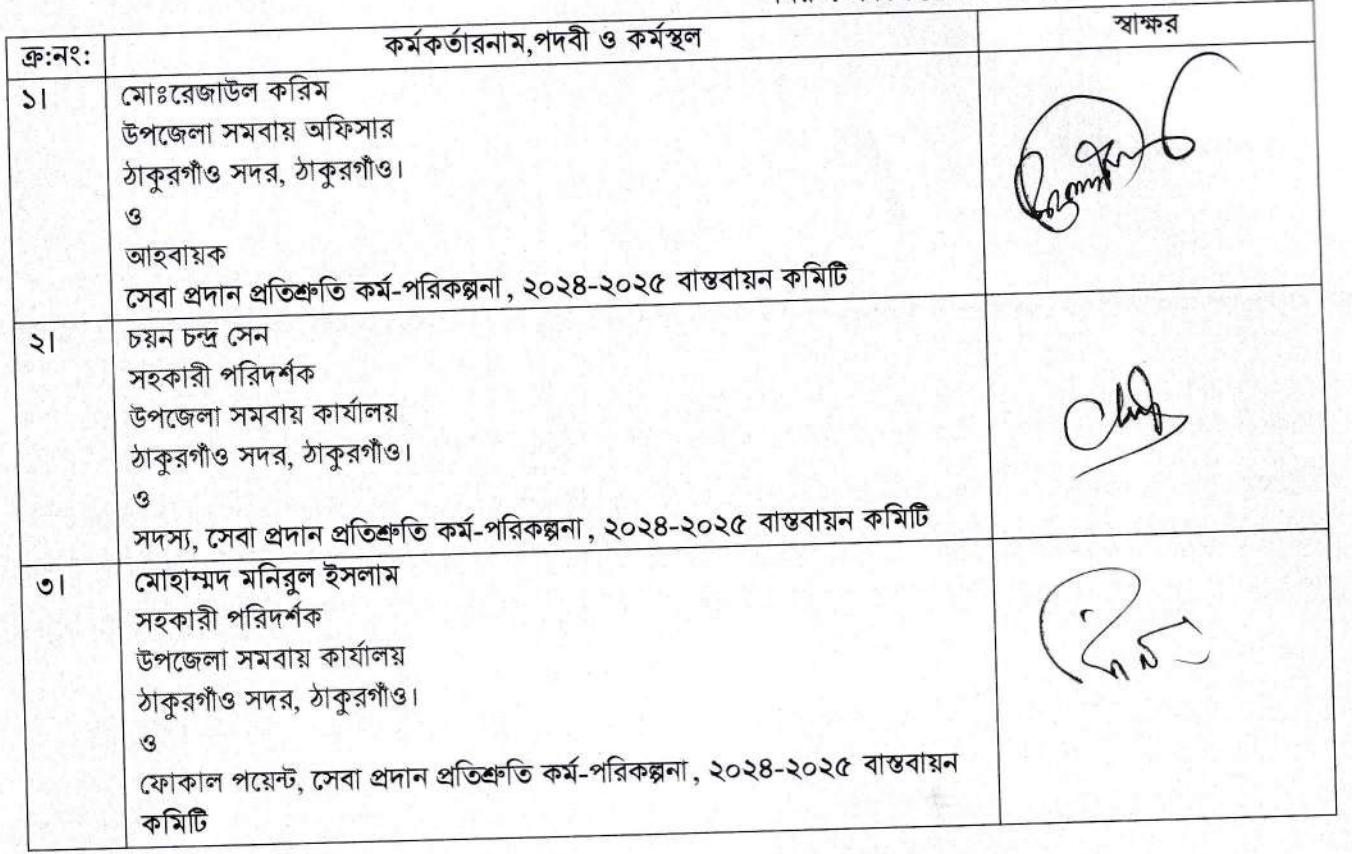 ক্র:নং: কর্মকর্তারনাম,পদবী ও কর্মস্থল স্বাক্ষর
১। মোঃরেজাউল করিম
উপজেলা সমবায় অফিসার
ঠাকুরগাঁও সদর, ঠাকুরগাঁও।
ও
আহবায়ক
সেবা প্রদান প্রতিশ্রুতি কর্ম-পরিকল্পনা, ২০২৪-২০২৫ বাস্তবায়ন কমিটি
২। চয়ন চন্দ্র সেন
সহকারী পরিদর্শক
উপজেলা সমবায় কার্যালয়
ঠাকুরগাঁও সদর, ঠাকুরগাঁও।
ও
সদস্য, সেবা প্রদান প্রতিশ্রুতি কর্ম-পরিকল্পনা, ২০২৪-২০২৫ বাস্তবায়ন কমিটি
৩। মোহাম্মদ মনিরুল ইসলাম
সহকারী পরিদর্শক
উপজেলা সমবায় কার্যালয়
ঠাকুরগাঁও সদর, ঠাকুরগাঁও।
ও
ফোকাল পয়েন্ট, সেবা প্রদান প্রতিশ্রুতি কর্ম-পরিকল্পনা, ২০২৪-২০২৫ বাস্তবায়ন
কমিটি